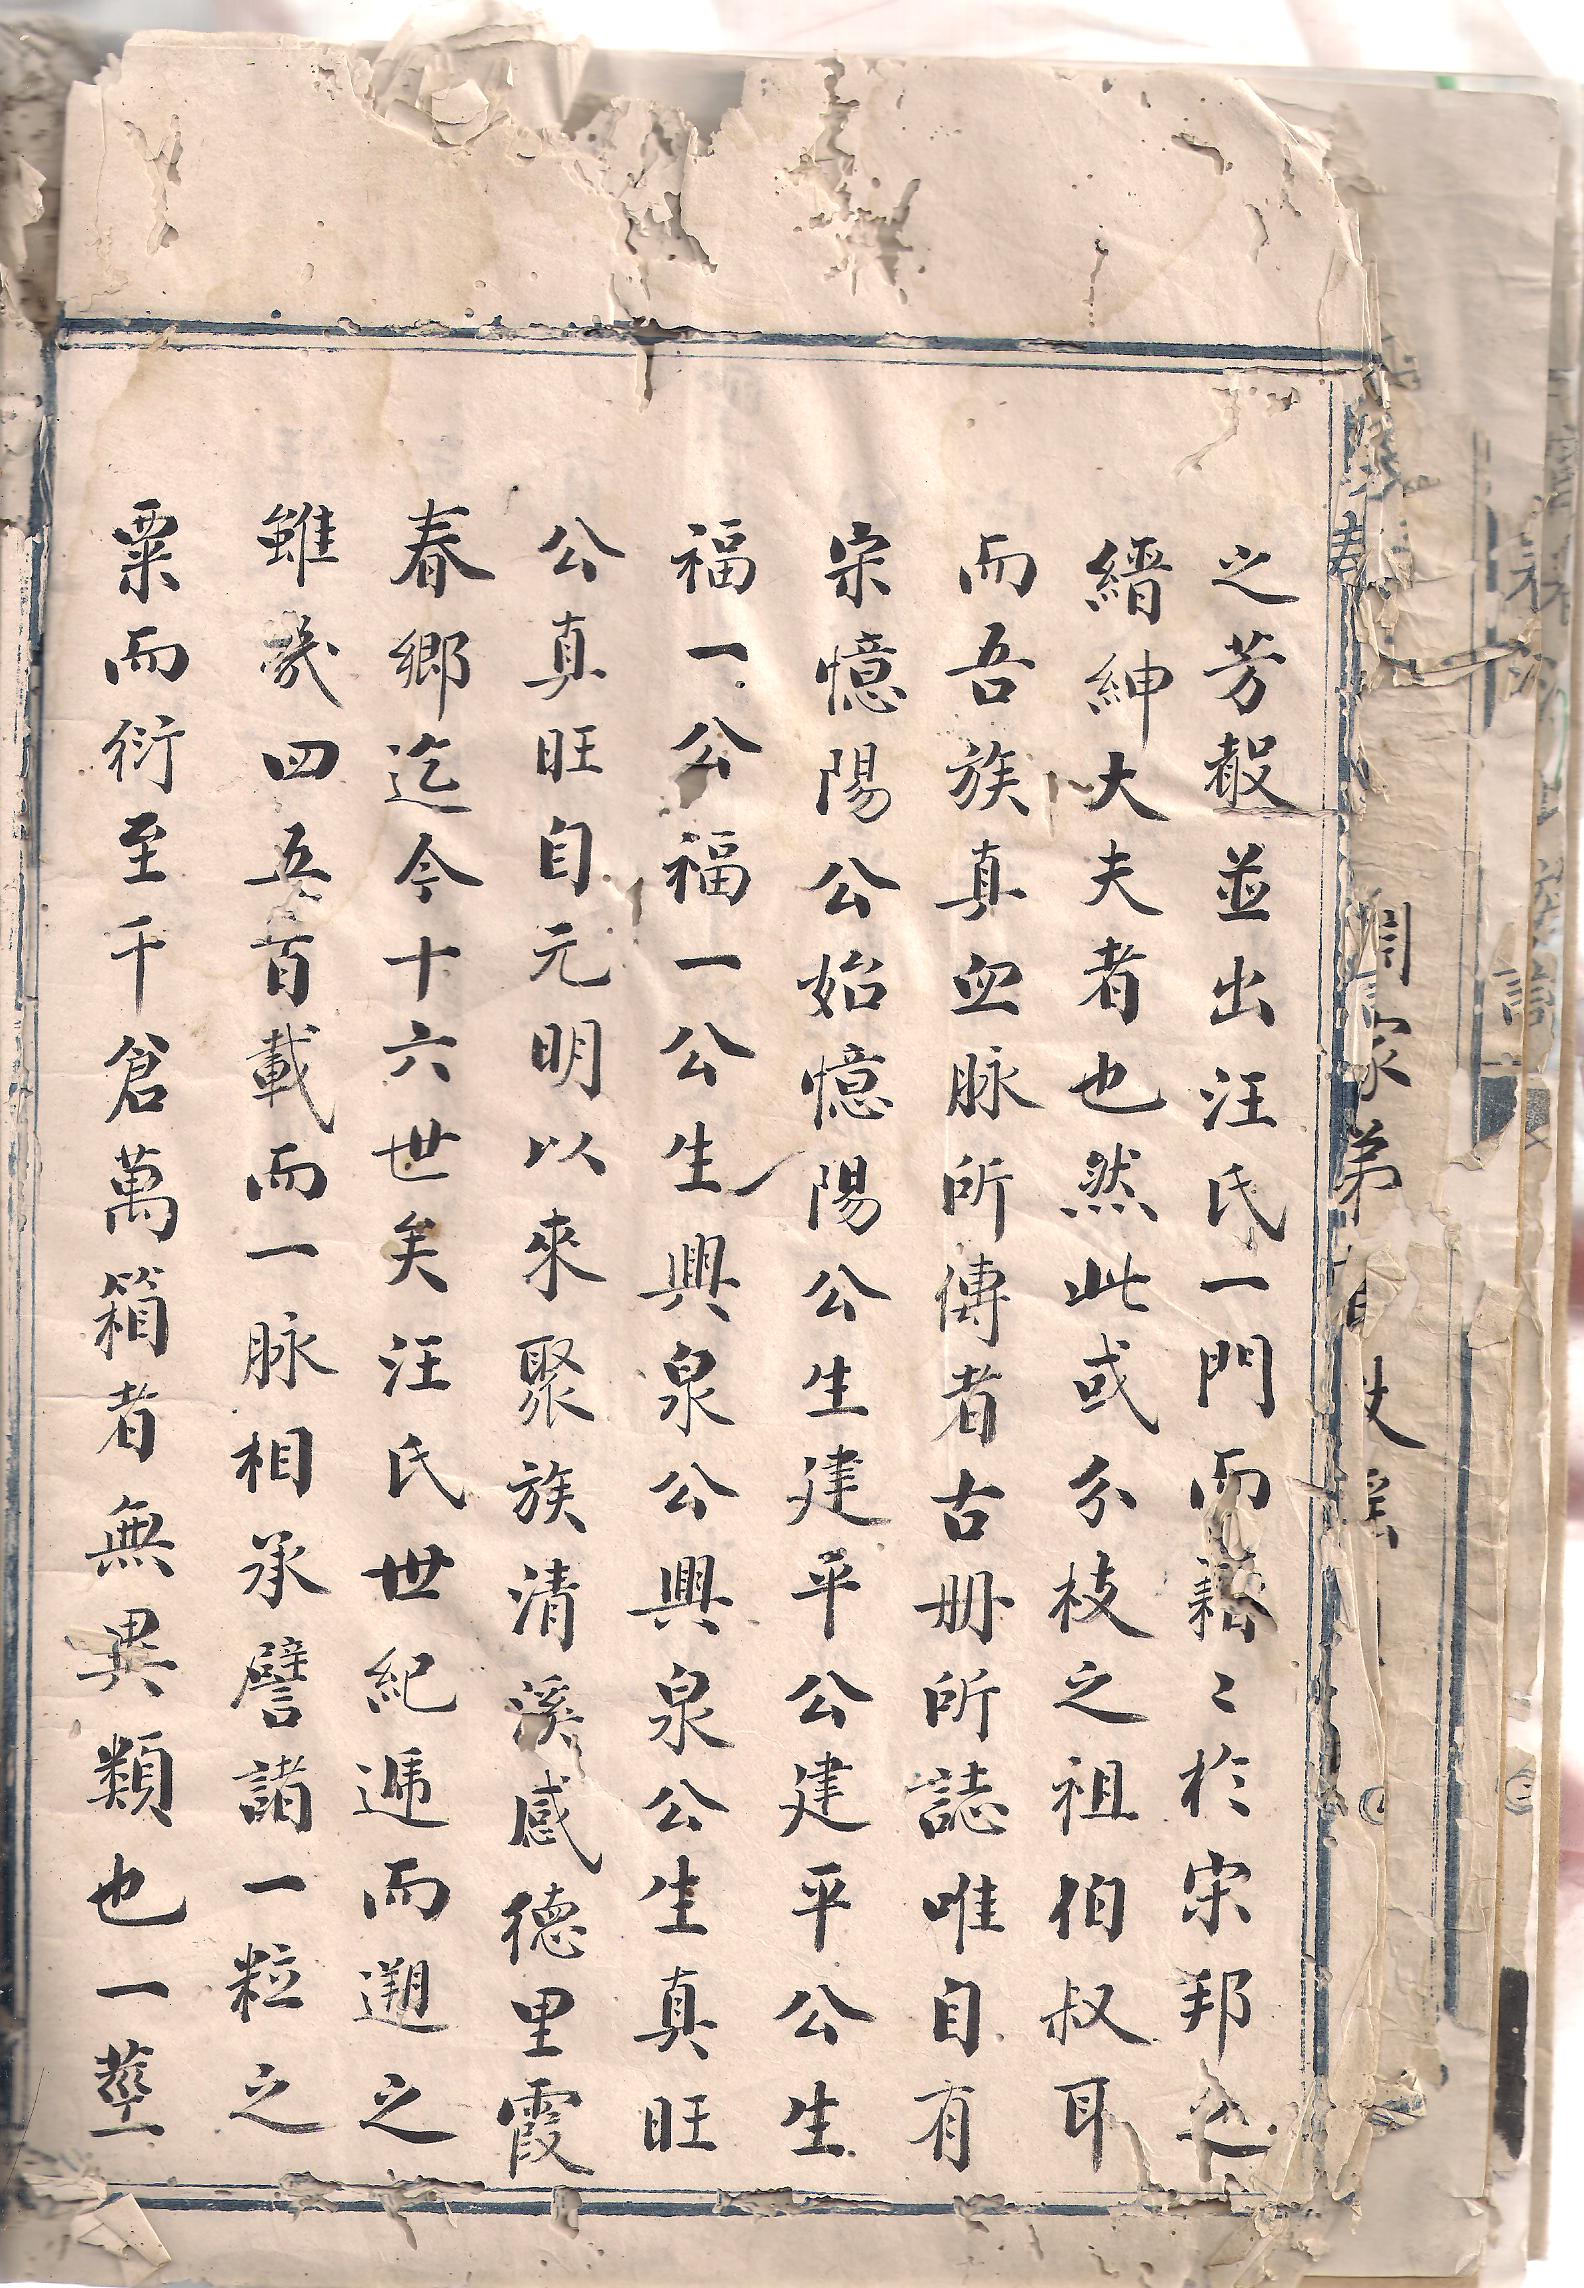 之芳馥並出汪氏一門而藉〻於宋邦之
縉紳大夫者也然此或分枝之祖伯叔耳
而吾族真血脉所傳者古冊所誌唯自有
宋憶陽公始憶陽公生建平公建平公生
福一公福一公生興泉公興泉公生真旺
公真旺自元明以來聚族清溪感德里霞
春鄉迄今十六世矣汪氏世紀遞而遡之
雖幾四五百載而一脉相承譬諸一粒之
粟而衍至千倉萬箱者無異類也一莖